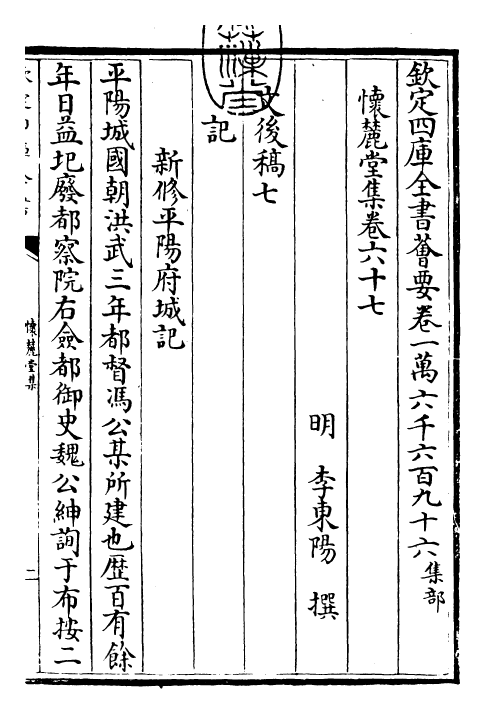 欽定四庫全書薈要卷一萬六千六百九十六集部
懷麓堂集卷六十七
明 李東陽 撰
文後稿七
記
新修平陽府城記
平陽城國朝洪武三年都督馮公某所建也歴百有餘
年日益圯廢都察院右僉都御史魏公紳詢于布按二
懷麓堂集